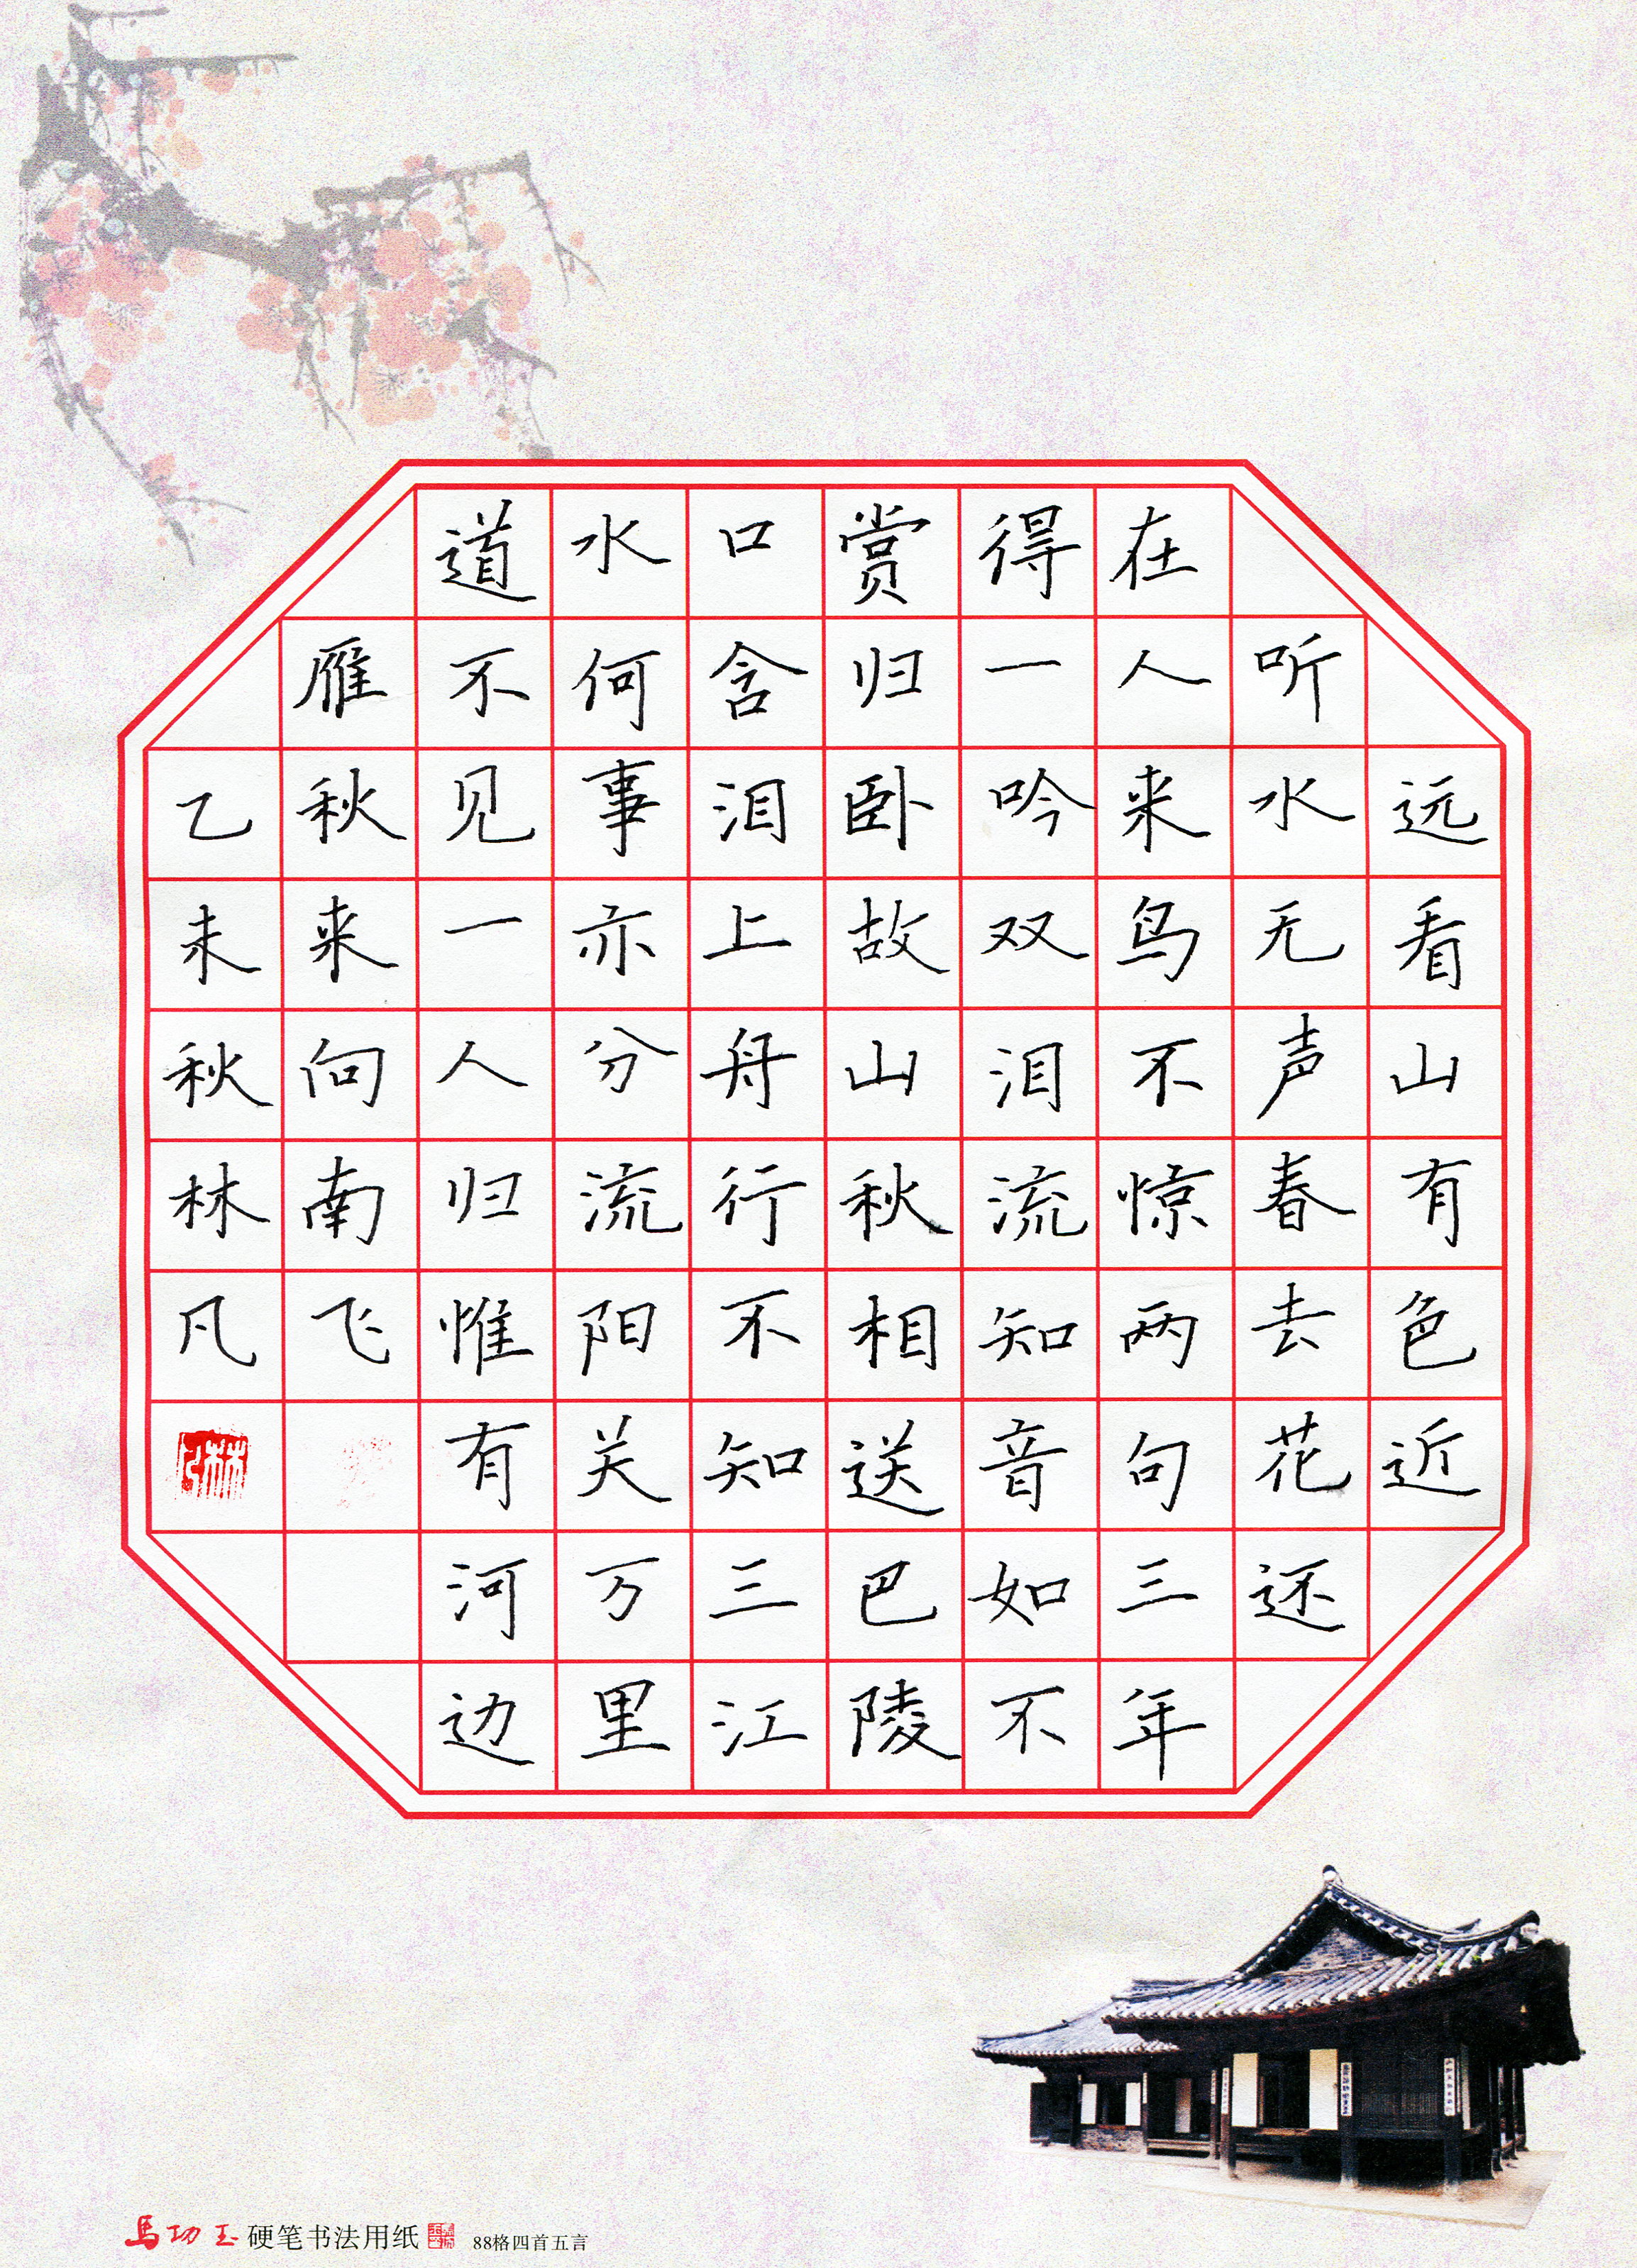 远看山有色近
听水无声春去花还
在人来鸟不惊两句三年
得一吟双泪流知音如不
赏归卧故山秋相送巴陵
口含泪上舟行不知三江
水何事亦分流阳关万里
道不见一人归惟有河边
雁秋来向南飞
乙未秋林凡
馬功玉硬笔书法用纸 88格四首五言